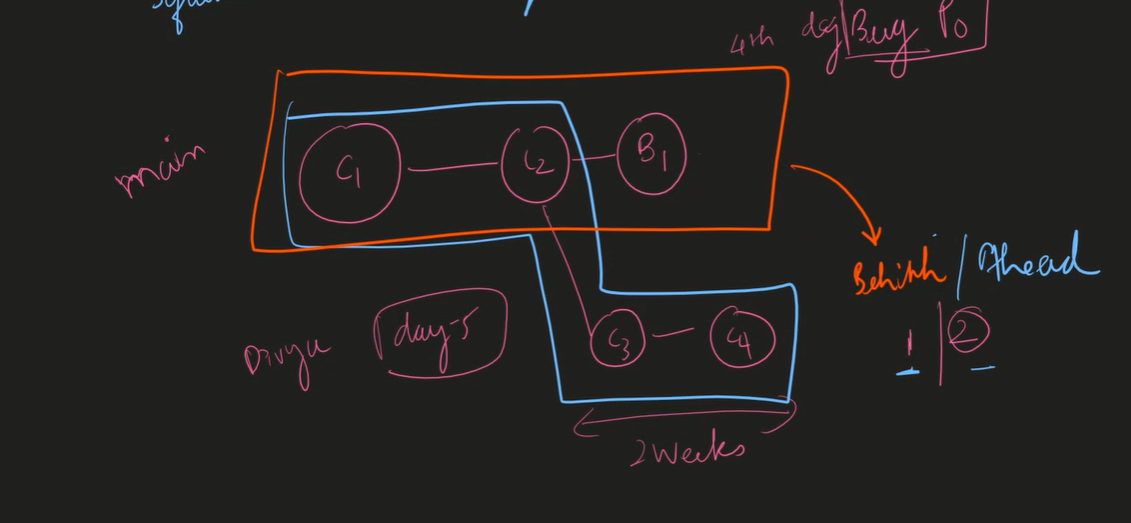 4th day Buy P0
main
C1
C2
B1
Behinh / Ahead
1 | 2
Divya
day-5
C3
C4
2 Weeks